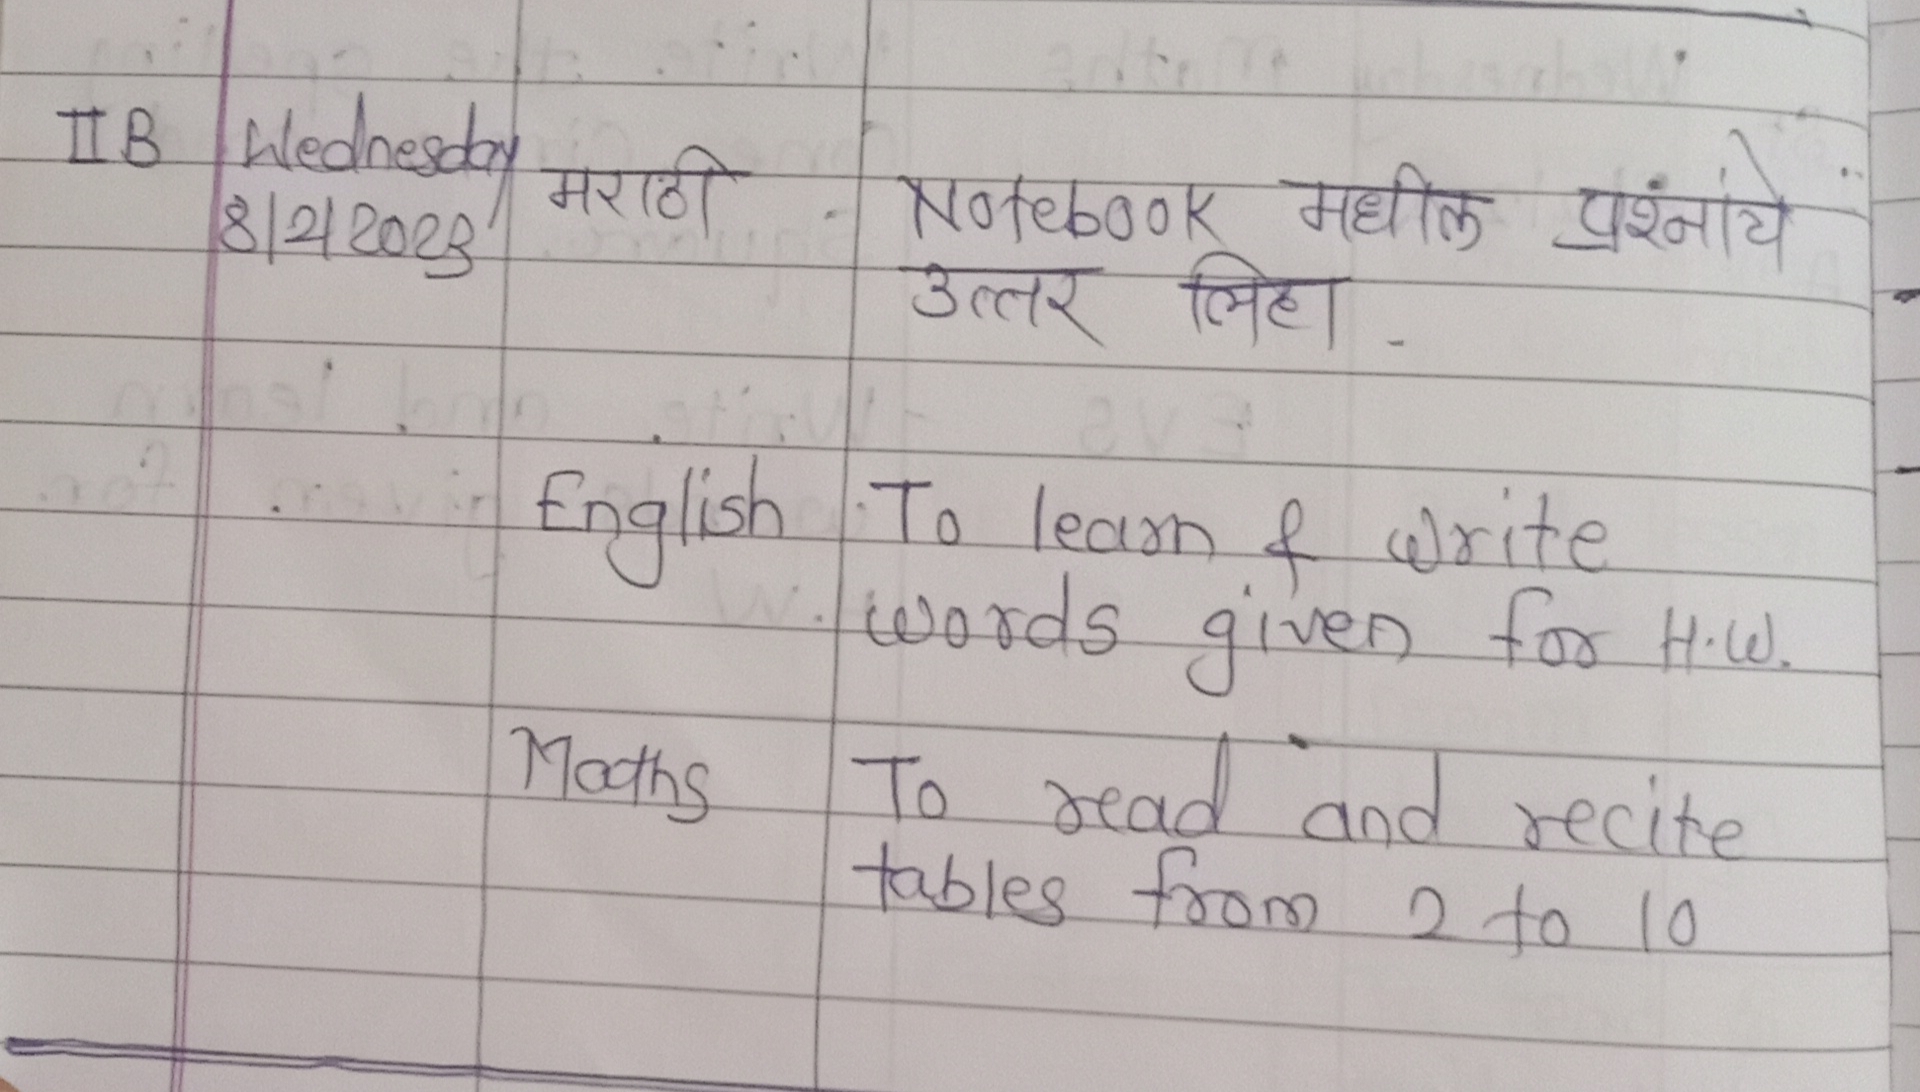 II B Wednesday
8/2/2023 मराठी Notebook मधील प्रश्नांचे
उत्तर लिहा.
English To learn & write
words given for H.W.
Maths To read and recite
tables from 2 to 10